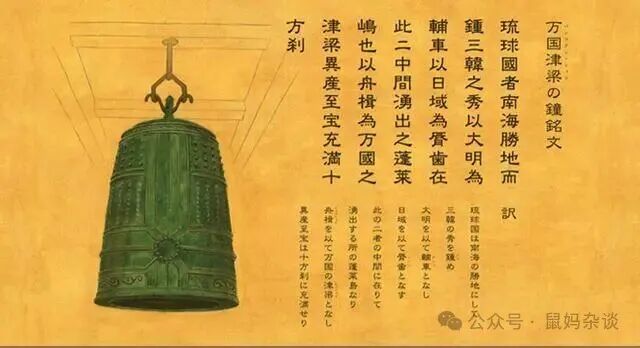 万国津梁の鐘銘文
琉球國者南海勝地而
鍾三韓之秀以大明為
輔車以日域為脣歯在
此二中間湧出之蓬莱
嶋也以舟楫為万國之
津梁異産至宝充満十
方刹
訳
琉球国は南海の勝地にして
三韓の秀を鍾め
大明を以て輔車となし
日域を以て脣歯となす
此の二者の中間に在りて
湧出する所の蓬莱島なり
舟楫を以て万国の津梁となし
異産至宝は十方刹に充満せり
公众号·鼠妈杂谈